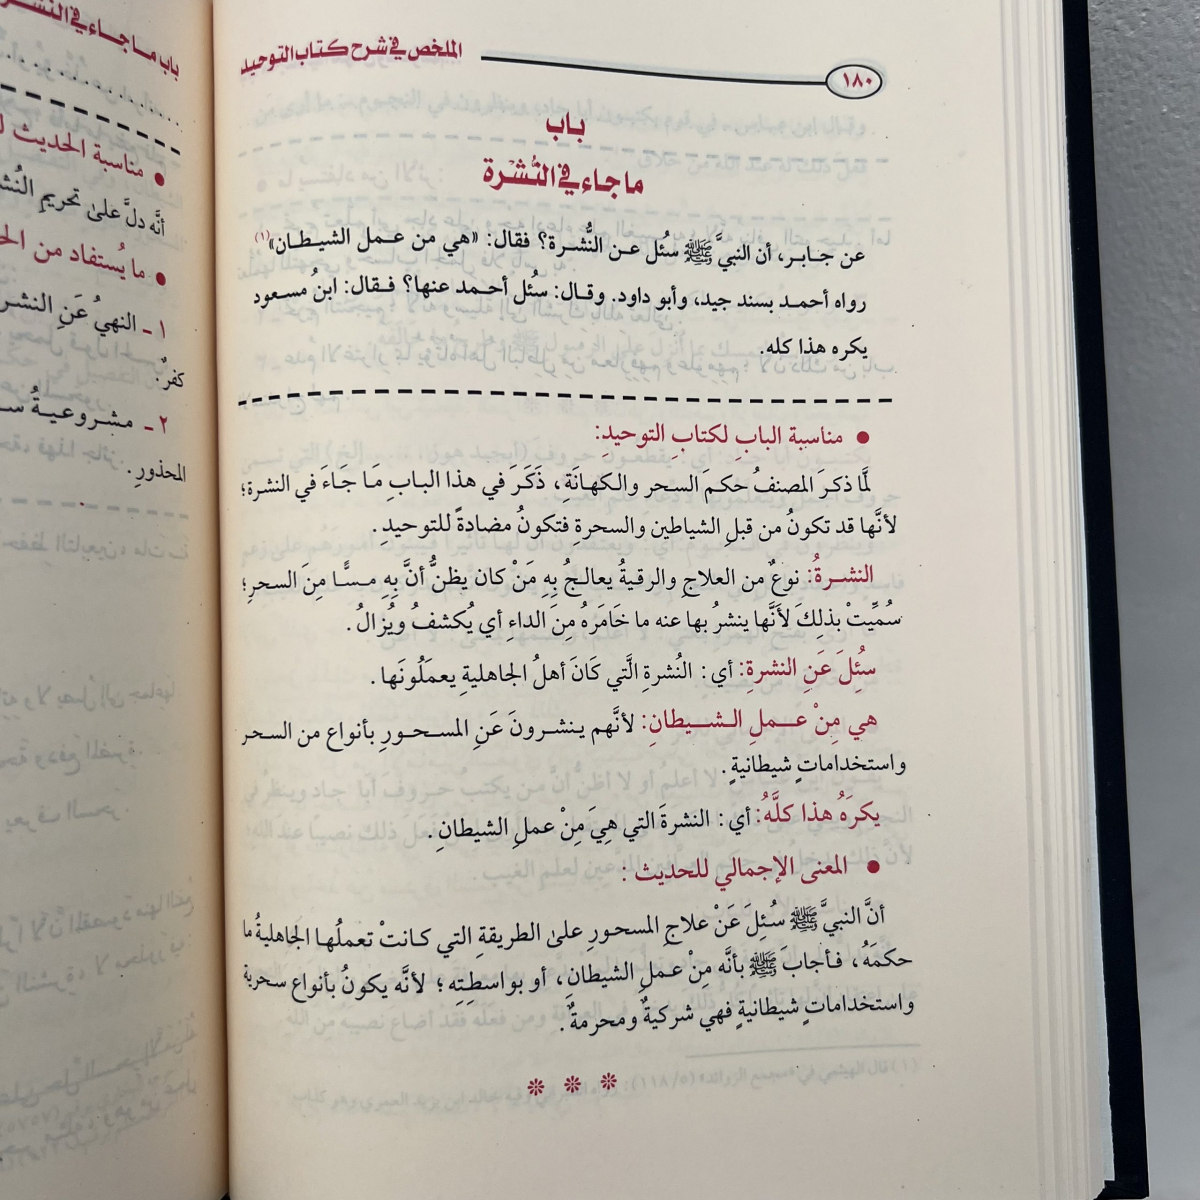 الملخص في شرح كتاب التوحيد
١٨٠
باب
ما جاء في النُّشْرة
عن جـابـر، أن النبيَّ ﷺ سئل عن النُّشرة؟ فقال: «هي من عمل الشيطان»(١)
رواه أحمد بسند جيد، وأبو داود. وقال: سئل أحمد عنها؟ فقال: ابنُ مسعود
يكره هذا كله.
● مناسبة البابِ لكتابِ التوحيدِ:
لمَّا ذكرَ المصنفُ حكمَ السحر والكهانَةِ، ذَكَرَ في هذا البابِ مَا جَاءَ في النشرة؛
لأنَّها قد تكونُ من قبلِ الشياطين والسحرةِ فتكونُ مضادةً للتوحيدِ.
النشرةُ: نوعٌ من العلاجِ والرقيةُ يعالجُ بِهِ مَنْ كان يظنُّ أنَّ بِهِ مسًّا مِنَ السحرِ؛
سُمِّيتْ بذلِكَ لأنَّها ينشرُ بها عنه ما خَامَرهُ مِنَ الداءِ أي يُكشفُ ويُزالُ.
سئُلَ عَنِ النشرةِ: أي: النُشرةِ الَّتي كَانَ أهلُ الجاهليةِ يعمَلُونَها.
هي مِنْ عملِ الشيطانِ: لأنَّهم ينشرونَ عَنِ المسحورِ بأنواع من السحر
واستخداماتٍ شيطانيةٍ.
يكرَهُ هذا كلَّهُ: أي: النشرةَ التي هِيَ مِنْ عملِ الشيطانِ.
● المعنى الإجمالي للحديث:
أنَّ النبيَّ ﷺ سُئِلَ عَنْ علاجِ المسحورِ على الطريقةِ التي كانتْ تعملُها الجاهليةُ ما
حكمَهُ، فأجابَ ﷺ بأنَّه مِنْ عملِ الشيطانِ، أو بواسطِتِه؛ لأنَّه يكونُ بأنواع سحرية
واستخداماتٍ شيطانيةٍ فهي شركيةٌ ومحرمةٌ.
باب ما جاء في النشر
● مناسبة الحديث ل
أنَّه دلَّ على تحريمِ النُش
● ما يُستفاد من الح
١ ـ النهيُ عَنِ النشر
كفرٌ.
٢ ـ مشروعيةُ سـ
المحذورِ.